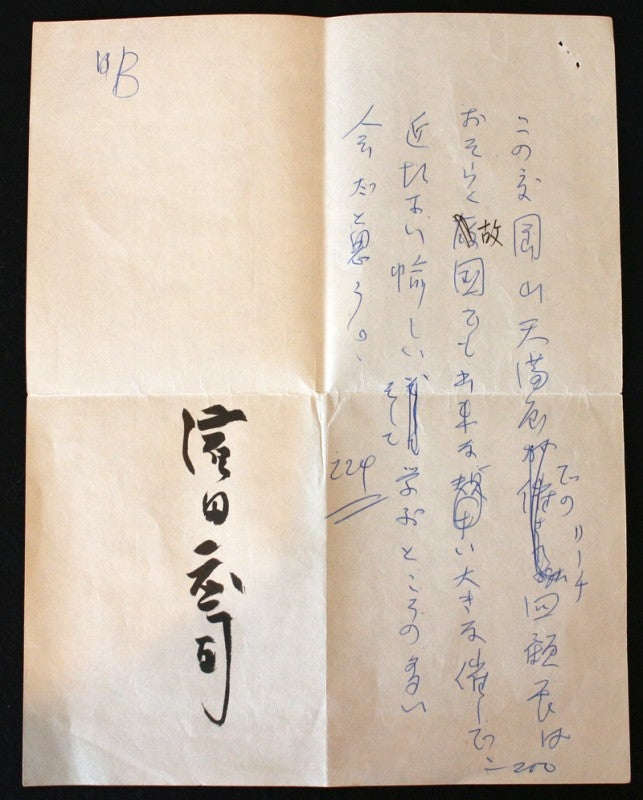 この度岡山天満屋でのリーチ回顧展は
おそらく故国でも出来ない大きな催しで
近頃ない愉しいそして学ぶところの多い
会だと思う。
224
200
濱田庄司